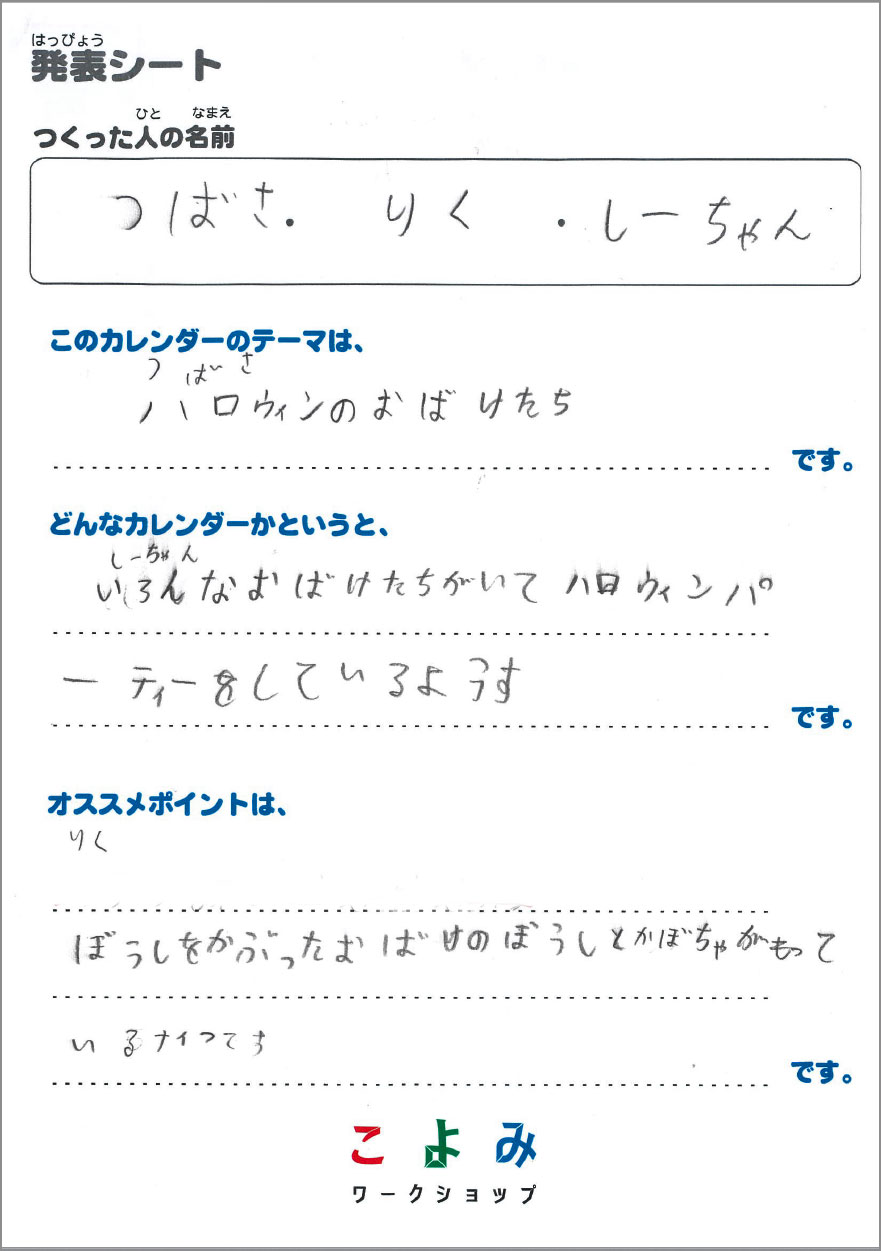 はっぴょう
発表シート
ひと なまえ
つくった人の名前
つばさ・ りく ・しーちゃん
このカレンダーのテーマは、
つばさ
ハロウィンのおばけたち
です。
どんなカレンダーかというと、
しーちゃん
いろんなおばけたちがいてハロウィンパ
ーティーをしているようす
です。
オススメポイントは、
りく
ぼうしをかぶったおばけのぼうしとかぼちゃがもって
いるナイフてす
です。
こよみ
ワークショップ